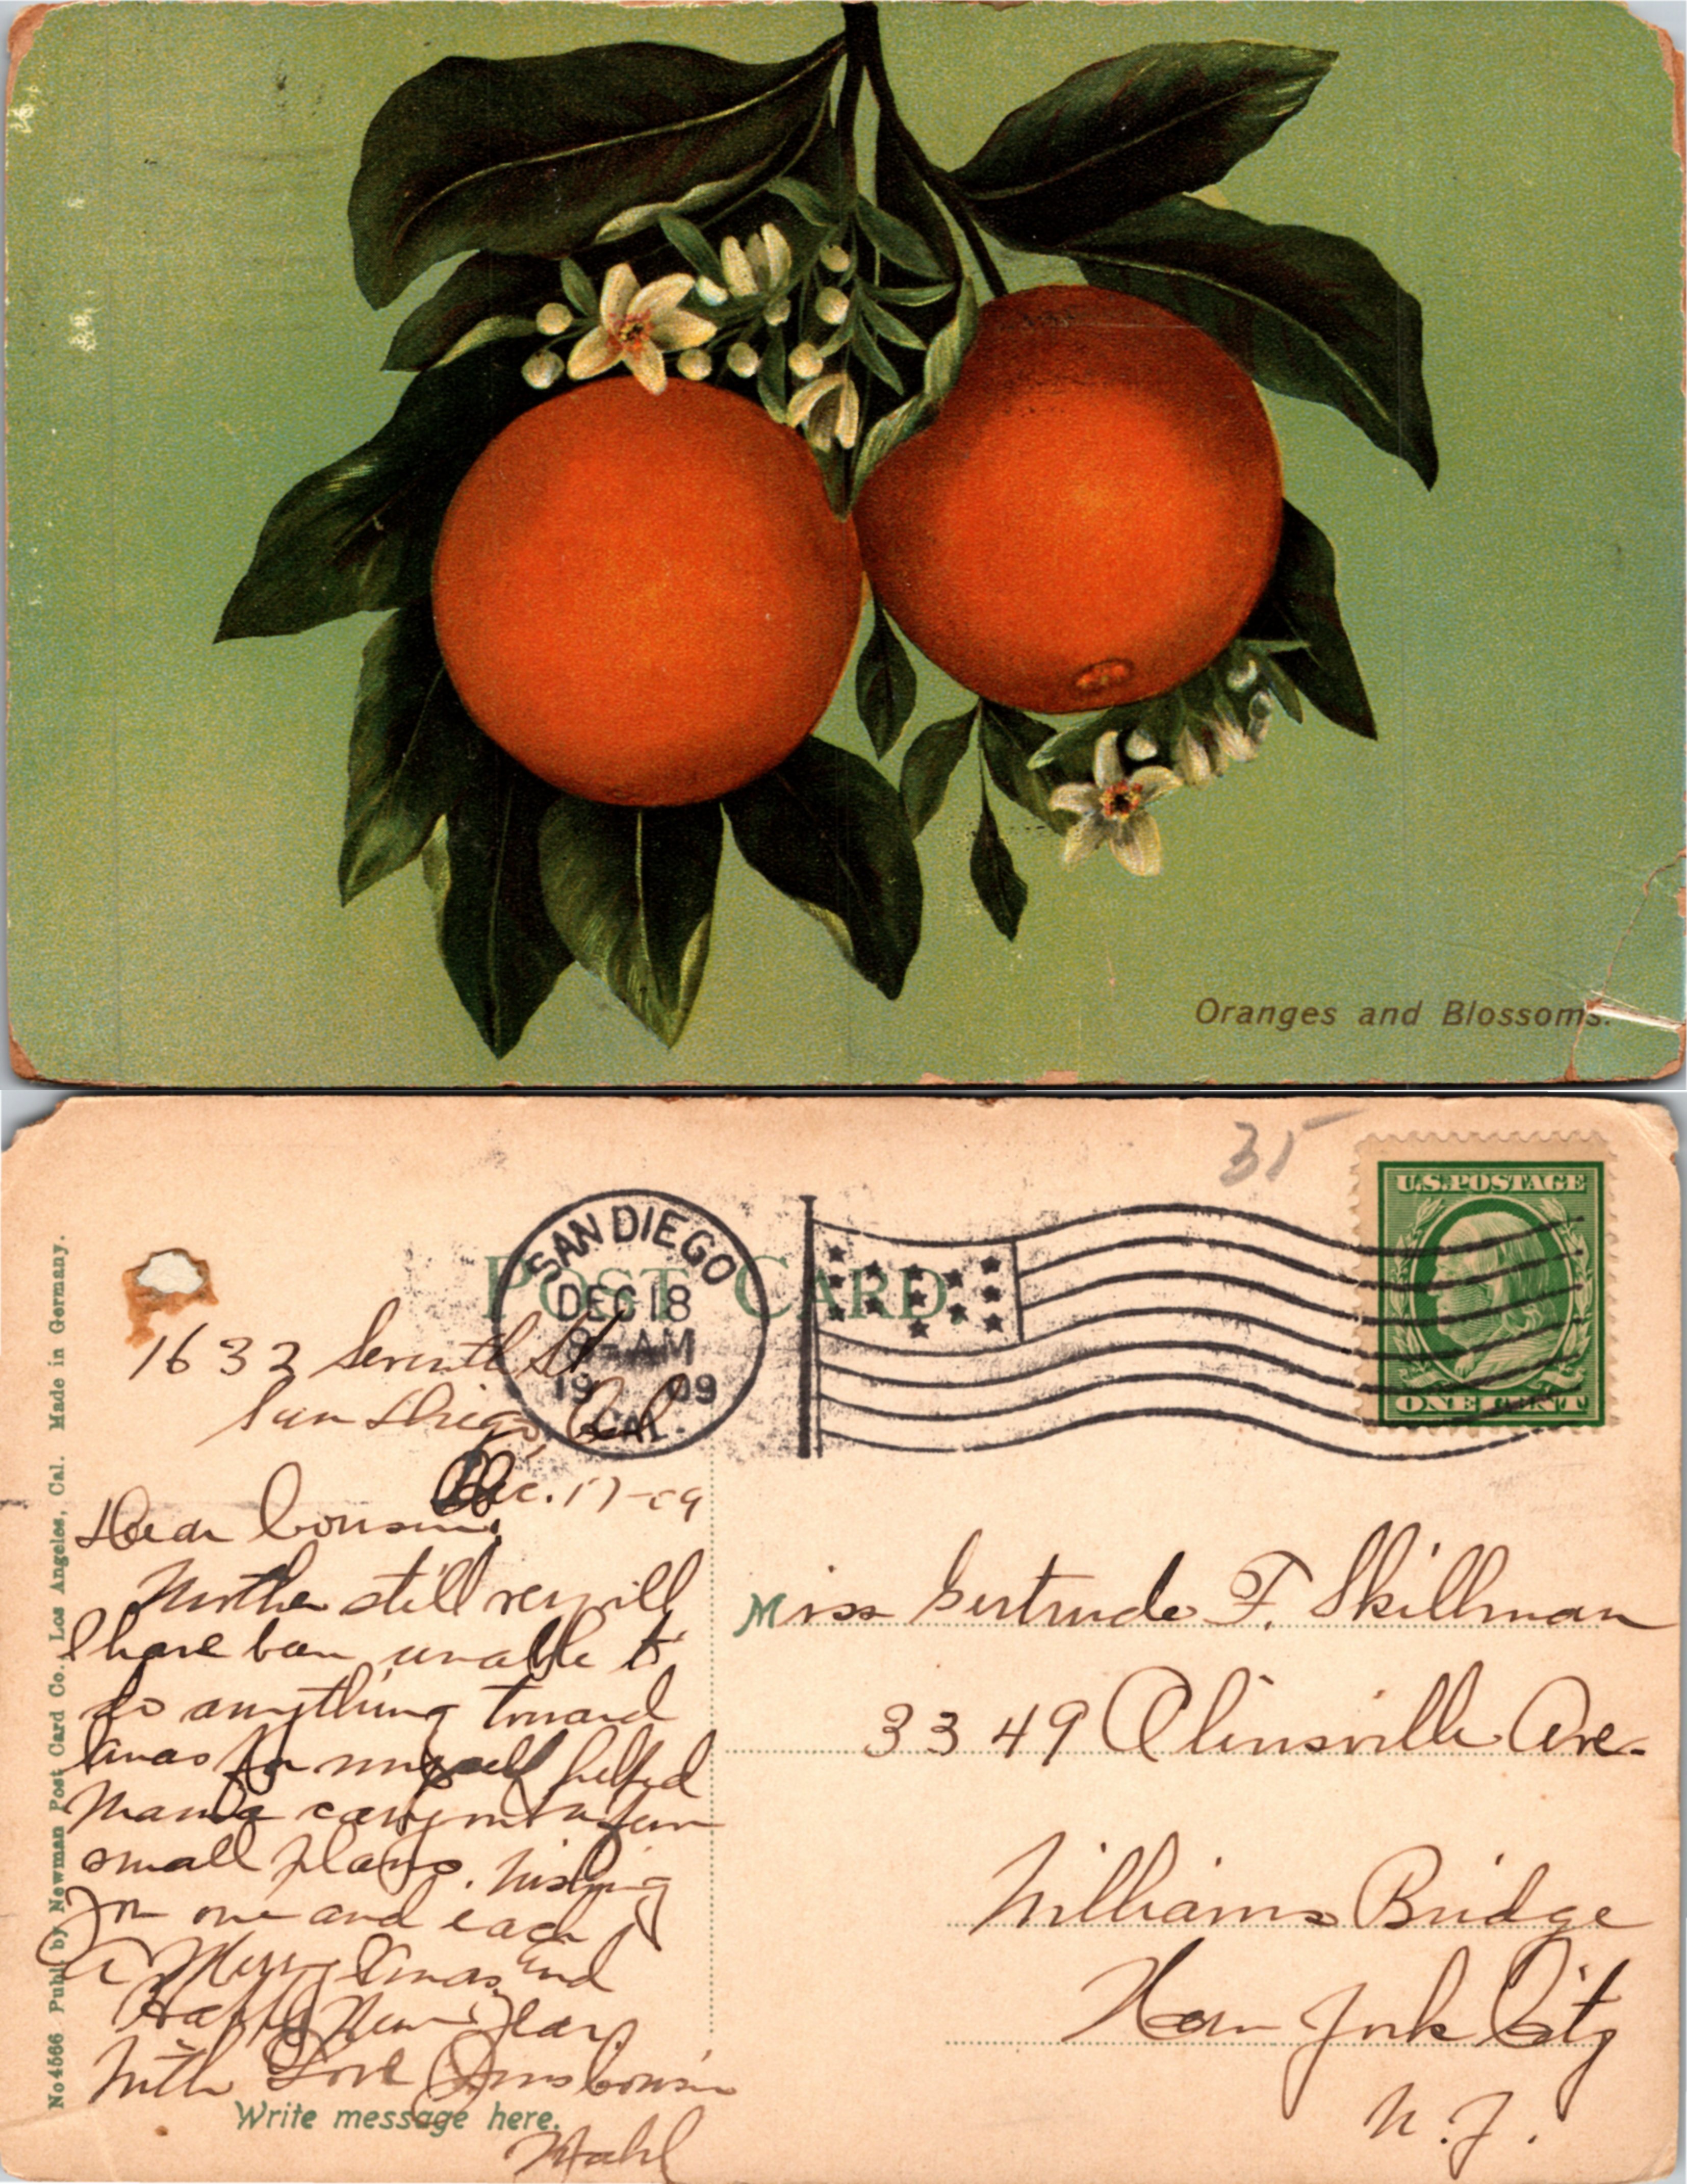 Oranges and Blossoms.
35
U.S. POSTAGE
ONE CENT
POST CARD
SAN DIEGO
DEC 18
8-AM
1909
CAL.
No 4566 Publ. by Newman Post Card Co. Los Angeles, Cal. Made in Germany.
1632 Seventh St
San Diego, Cal.
Dec. 17-09
Dear Cousin,
Mother still very ill
I have been unable to
do anything toward
Xmas for myself helped
Mama carry out a few
small plans. Wishing
you one and each
A Merry Xmas and
Happy New Year,
With Love Your Cousin
Write message here.
Miss Gertrude F. Skillman
3349 Olinsville Ave.
Williams Bridge
New York City
N.Y.